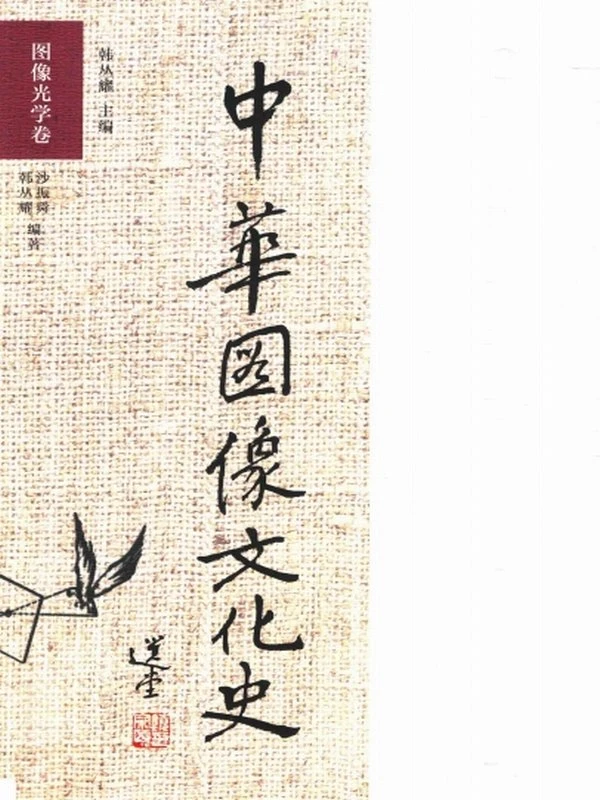 中華图像文化史
選堂
韩丛耀 主编
图像光学卷
沙振舜
韩丛耀 编著